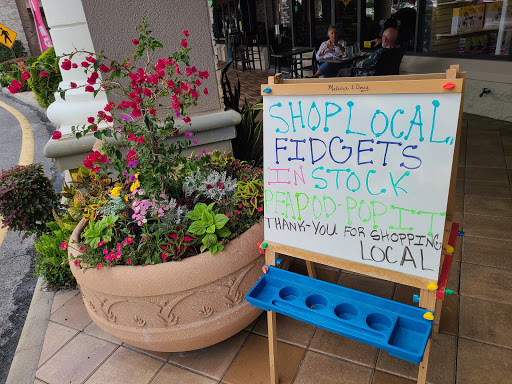 Melissa & Doug
SHOP LOCAL,
FIDGETS
IN STOCK
PEAPOD-POP IT
THANK-YOU FOR SHOPPING
LOCAL